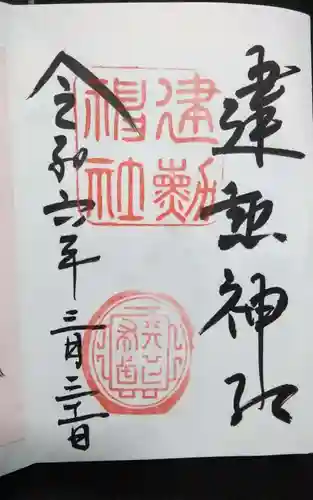 建勲神社
令和六年三月三十日
建勲
神社